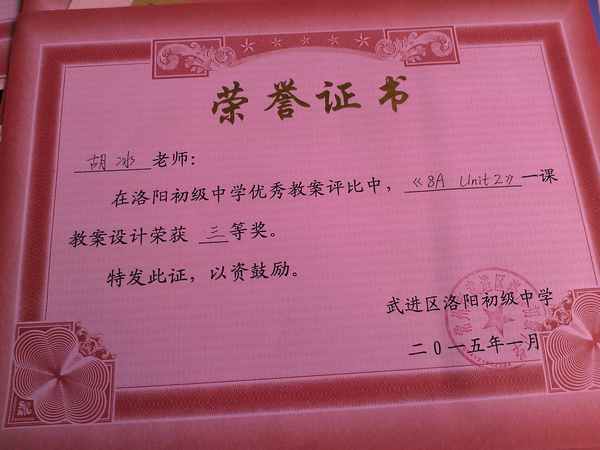 荣誉证书
胡冰老师：
在洛阳初级中学优秀教案评比中，《8A Unit2》一课
教案设计荣获 三等奖。
特发此证，以资鼓励。
武进区洛阳初级中学
二〇一五年一月